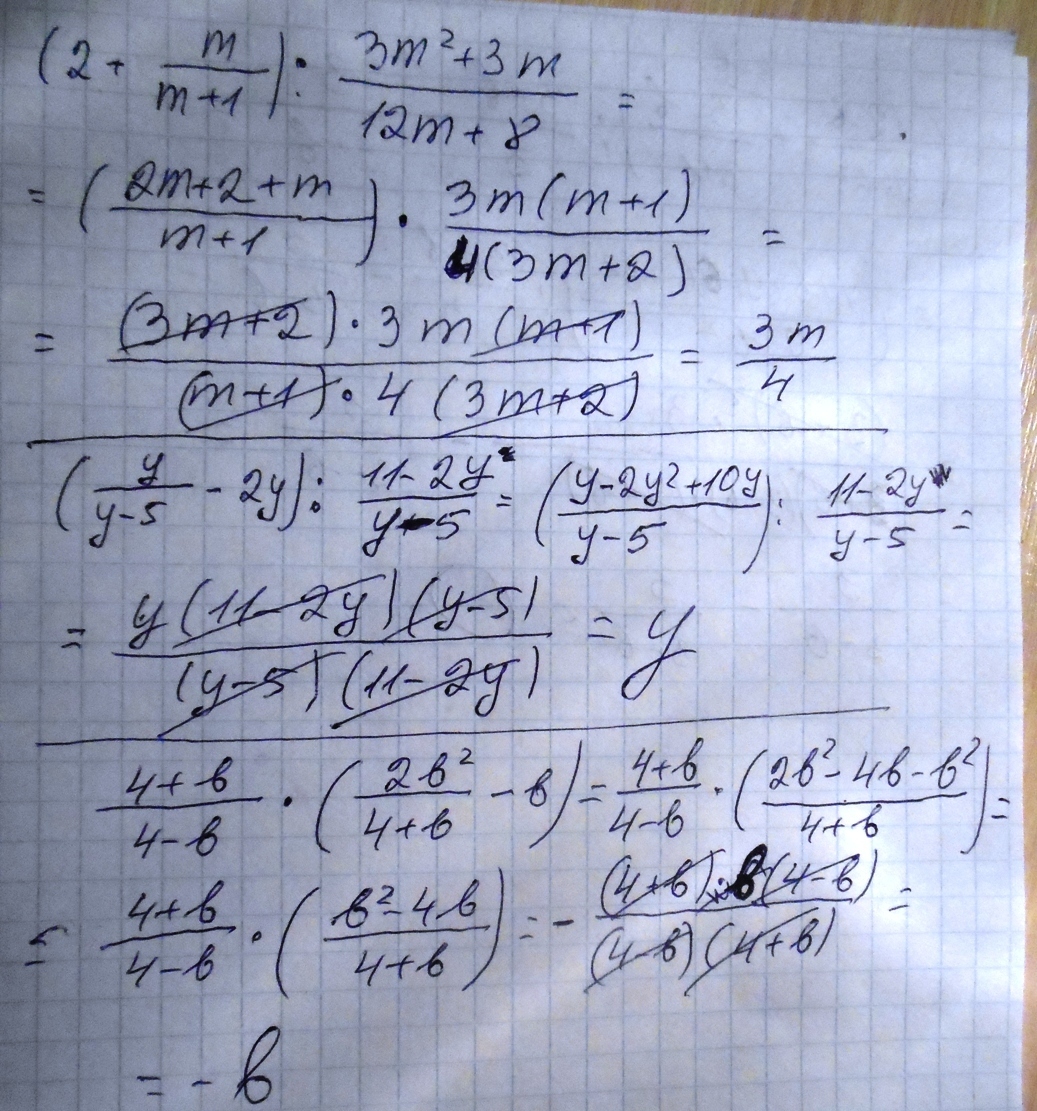 (2 + m/(m+1)) : (3m²+3m)/(12m+8) =
= ((2m+2+m)/(m+1)) · (3m(m+1))/(4(3m+2)) =
= ((3m+2)·3m(m+1))/((m+1)·4(3m+2)) = 3m/4
(y/(y-5) - 2y) : (11-2y)/(y-5) = ((y-2y²+10y)/(y-5)) : (11-2y)/(y-5) =
= (y(11-2y)(y-5))/((y-5)(11-2y)) = y
(4+b)/(4-b) · (2b²/(4+b) - b) = (4+b)/(4-b) · ((2b²-4b-b²)/(4+b)) =
= (4+b)/(4-b) · ((b²-4b)/(4+b)) = - ((4+b)·b(4-b))/((4-b)(4+b)) =
= - b